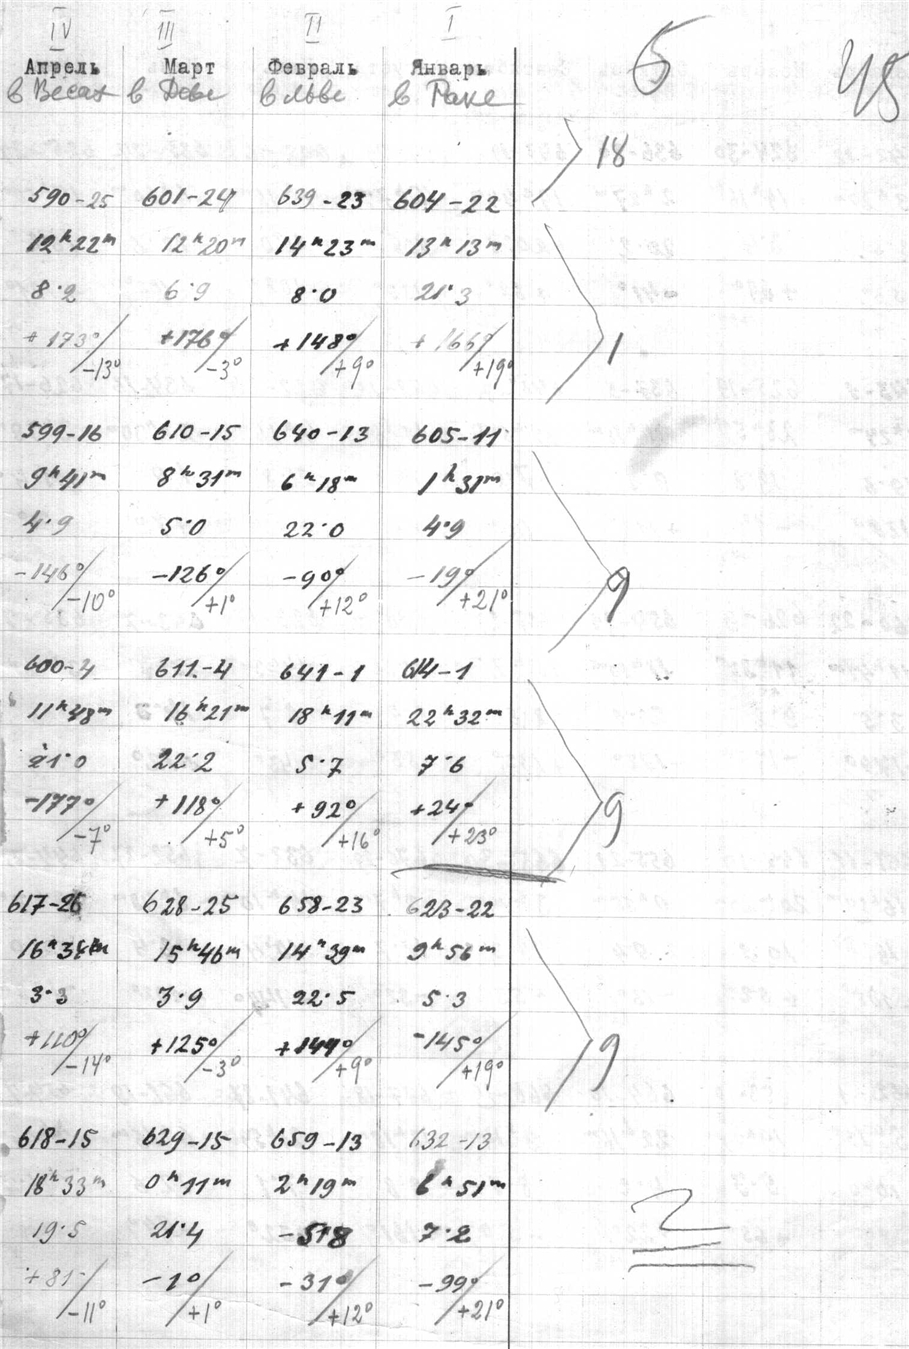 IV III II I
Апрель Март Февраль Январь 5
в Весах в Деве в Льве в Раке
18
590-25 601-24 639-23 604-22
12h22m 12h20m 14h23m 13h13m
8.2 6.9 8.0 21.3
+173° +176° +148° +166° 1
-13° -3° +9° +19°
599-16 610-15 640-13 605-11
9h41m 8h31m 6h18m 1h31m
4.9 5.0 22.0 4.9
-146° -126° -90° -19° 9
-10° +1° +12° +21°
600-4 611-4 641-1 614-1
11h48m 16h21m 18h11m 22h32m
21.0 22.2 5.7 7.6
-177° +118° +92° +24° 9
-7° +5° +16° +23°
617-26 628-25 658-23 623-22
15h46m 14h39m 9h56m
3.3 3.9 22.5 5.3
+110° +125° +149° -145° 9
-14° -3° +9° +19°
618-15 629-15 659-13 632-13
18h33m 0h11m 2h19m 6h51m
19.5 21.4 7.2 2
+81° -1° -31° -99°
-11° +1° +12° +21°